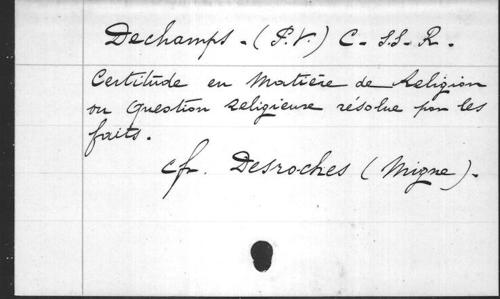 Dechamps - (P.V.) C - SS - R -
Certitude en Matière de Religion
ou Question Religieuse résolue par les
faits.
cfr. Desroches (Migne).